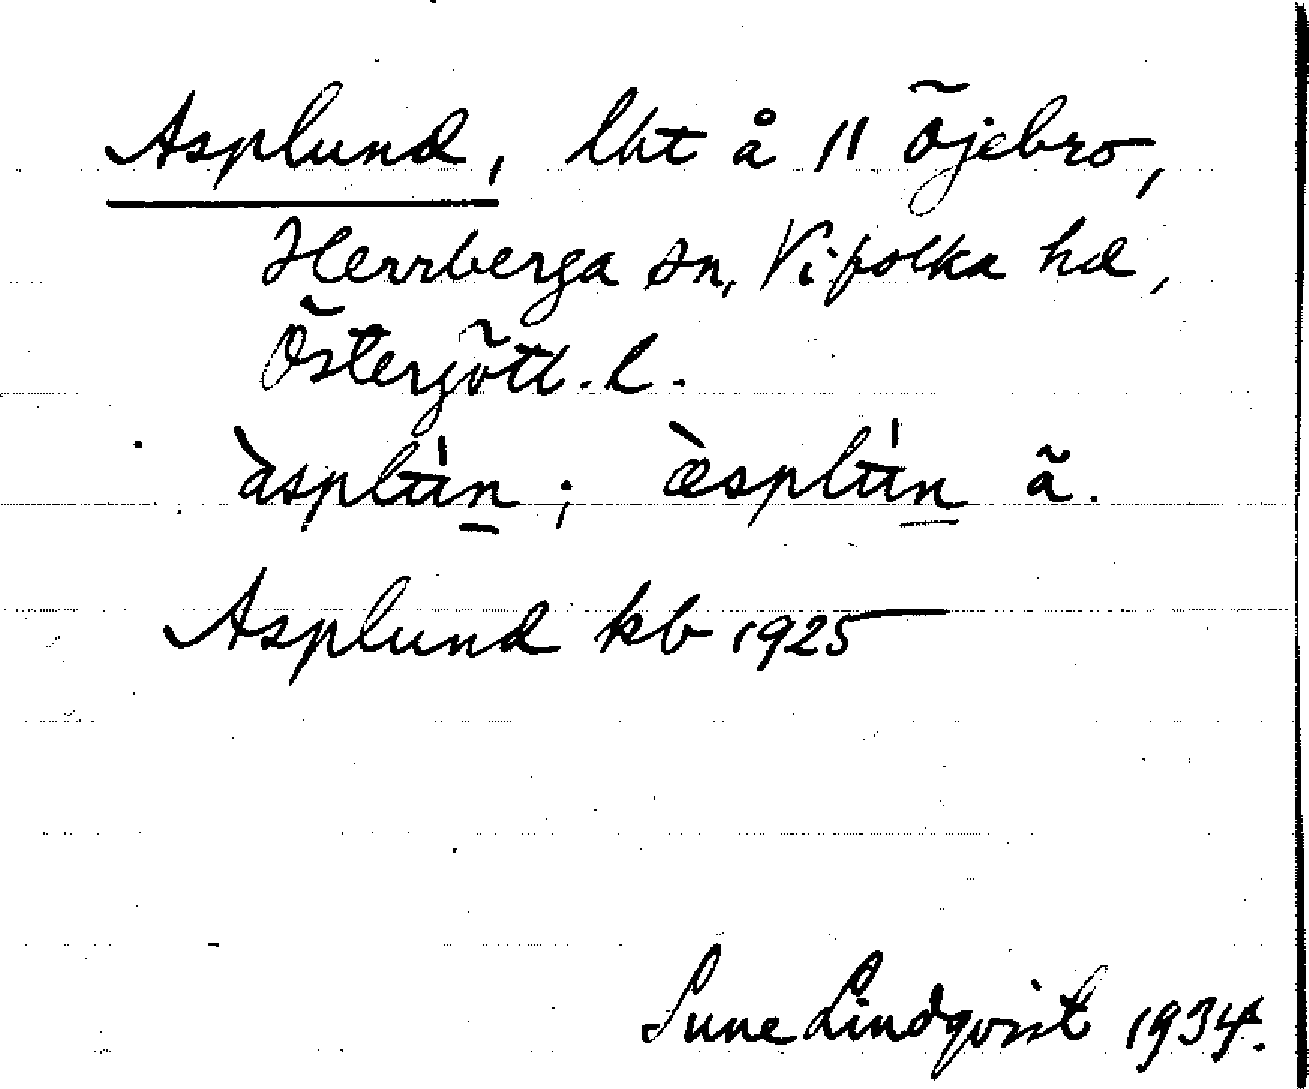 Asplund, lht å 11 Öjebro,
Herrberga sn, Vifolka hd,
Östergötl. l.
àsplún; æ̀splún ä.
Asplund kb 1925
Sune Lindqvist 1934.